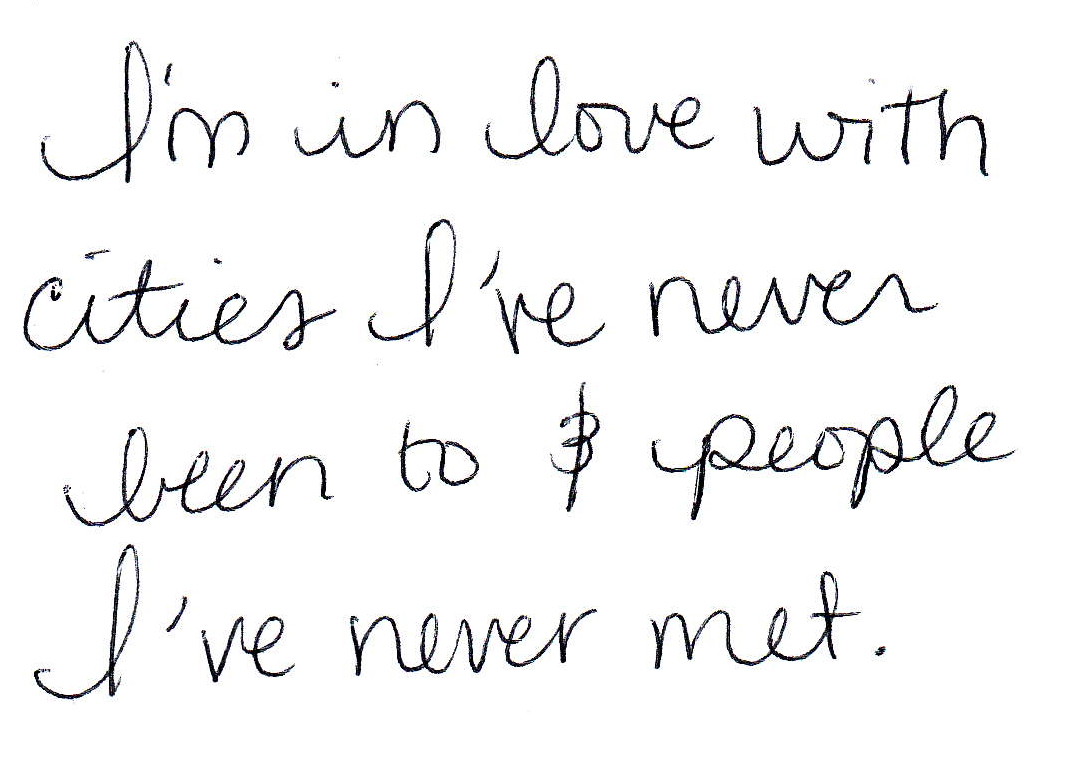 I'm in love with
cities I've never
been to & people
I've never met.